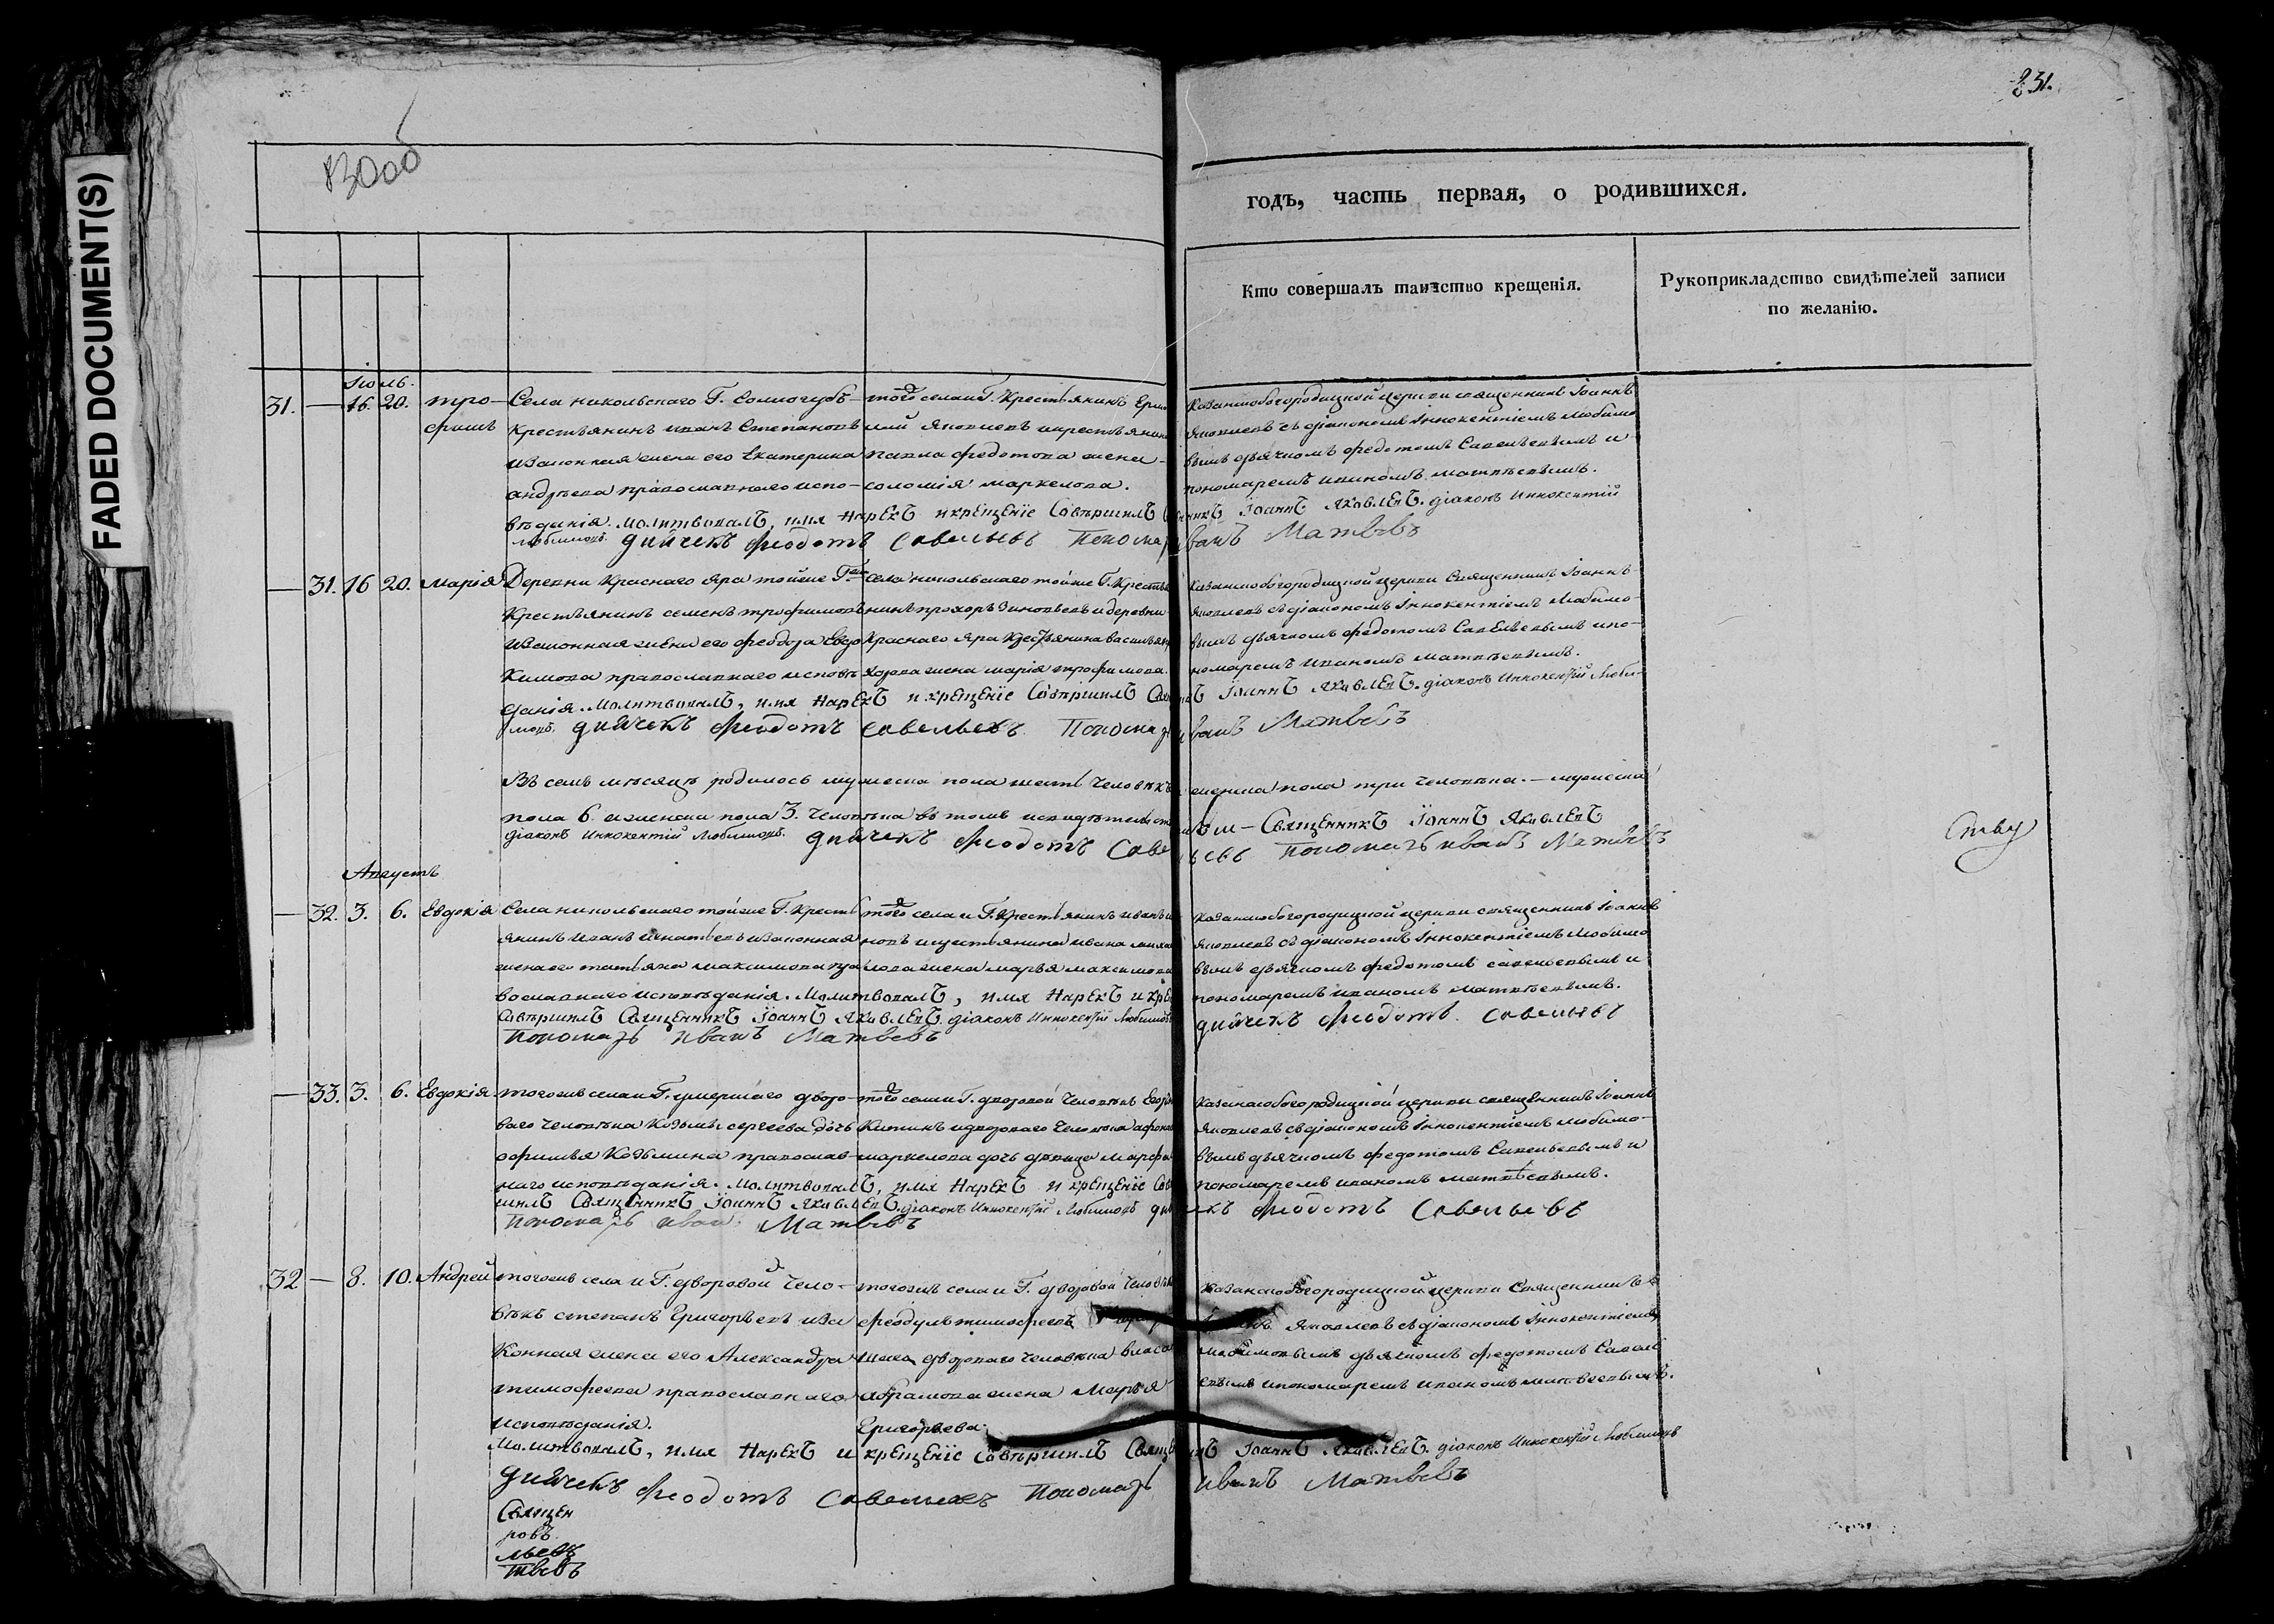 FADED DOCUMENT(S)
231.
годъ, часть первая, о родившихся.
Кто совершалъ таинство крещенія.
Рукоприкладство свидѣтелей записи
по желанію.
Іюль.
31. — 16. 20. Тро-
фимъ
Села Никольскаго Г. Сологубъ
крестьянинъ Иванъ Степановъ
и законная жена его Екатерина
Андреева православнаго испо-
вѣданія. Молитвовалъ, имя нарекъ и крещеніе совершилъ
Іоаннъ Яковлевъ. діаконъ Иннокентій
Любимовъ. дьячекъ Феодотъ Савельевъ Пономарь Иванъ Матвеевъ
того села и Г. Крестьянинъ Ермо
лай Яковлевъ и крестьянина
Павла Федотова жена
Соломія Маркелова.
Казанскобогородицкой церкви священникъ Іоаннъ
Яковлевъ съ діакономъ Іннокентіемъ Любимо
вымъ дьячкомъ Федотомъ Савельевымъ и
пономаремъ Иваномъ Матвѣевымъ.
— 31. 16 20. Марія
Деревни Краснаго Яра тойже Г.
Крестьянинъ Семенъ Трофимовъ
и законная жена его Феодора Евдо
кимова православнаго исповѣ
данія. Молитвовалъ, имя нарекъ и крещеніе совершилъ
Іоаннъ Яковлевъ. діаконъ Иннокентій Люби-
мовъ. дьячекъ Феодотъ Савельевъ. Пономарь Иванъ Матвеевъ
Села Никольскаго тойже Г. Крестья
нинъ Прохоръ Зиновьевъ и деревни
Краснаго Яра крестьянина
жена Марія Трофимова.
Казанскобогородицкой церкви Священникъ Іоаннъ
Яковлевъ съ діакономъ Іннокентіемъ Любимо-
вымъ дьячкомъ Федотомъ Савельевымъ и по-
номаремъ Иваномъ Матвѣевымъ.
Въ семъ мѣсяцѣ родилось мужеска пола шесть человѣкъ женска пола три человѣка. — мужеска
пола 6. а женска пола 3. человѣка въ томъ и свидѣтельствуемъ — Священникъ Іоаннъ Яковлевъ
діаконъ Иннокентій Любимовъ. дьячекъ Феодотъ Савельевъ Пономарь Иванъ Матвеевъ
Августъ
— 32. 3. 6. Евдокія
Села Никольскаго тойже Г. Кресть
янинъ Иванъ Игнатьевъ и законная
жена его Татьяна Максимова пра
вославнаго исповѣданія. Молитвовалъ, имя нарекъ и
совершилъ Священникъ Іоаннъ Яковлевъ. діаконъ Иннокентій Любимовъ
Пономарь Иванъ Матвеевъ
того села и Г. Крестьянинъ Иванъ
новъ и крестьянина Ивана
лова жена Марья Максимова
Казанскобогородицкой церкви священникъ Іоаннъ
Яковлевъ съ діакономъ Іннокентіемъ Любимо
вымъ дьячкомъ Федотомъ Савельевымъ и
пономаремъ Иваномъ Матвѣевымъ.
дьячекъ Феодотъ Савельевъ
— 33. 3. 6. Евдокія
тогожъ села и Г. умершаго дворо-
ваго человѣка Козьмы Сергеева дочь
Офимья Козьмина православ-
наго исповѣданія. Молитвовалъ, имя нарекъ и крещеніе совер
шилъ Священникъ Іоаннъ Яковлевъ. діаконъ Иннокентій Любимовъ дьячекъ Феодотъ Савельевъ
Пономарь Иванъ Матвеевъ
того села и Г. дворовой человѣкъ
и двороваго человѣка
Маркелова дочь девица Марфа
Казанскобогородицкой церкви священникъ Іоаннъ
Яковлевъ съ діакономъ Іннокентіемъ Любимо-
вымъ дьячкомъ Федотомъ Савельевымъ и
пономаремъ Иваномъ Матвѣевымъ.
32 — 8. 10. Андрей
тогожъ села и Г. дворовой чело-
вѣкъ Степанъ Григорьевъ и за
конная жена его Александра
Тимофеева православнаго
исповѣданія.
Молитвовалъ, имя нарекъ и крещеніе совершилъ Іоаннъ Яковлевъ. діаконъ Иннокентій Любимовъ
дьячекъ Феодотъ Савельевъ Пономарь Иванъ Матвеевъ
тогожъ села и Г. дворовой человѣкъ
Феодулъ Тимофеевъ
двороваго человѣка Власа
Абрамова жена Марья
Григорьева.
Казанскобогородицкой церкви Священникъ
Яковлевъ съ діакономъ Іннокентіемъ
Любимовымъ дьячкомъ Федотомъ Савель
евымъ и пономаремъ Иваномъ Матвѣевымъ.
Священ
ровъ
льевъ
твевъ